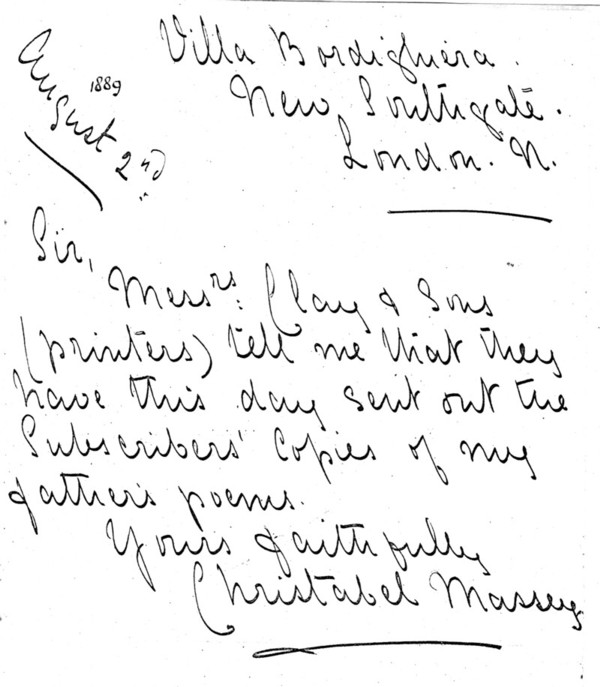 Villa Bordighiera.
New Southgate.
London. N.
August 2nd
1889
Sir,
Messrs: Clay & Sons
(printers) tell me that they
have this day sent out the
Subscribers' Copies of my
father's poems.
Yours faithfully
Christabel Massey